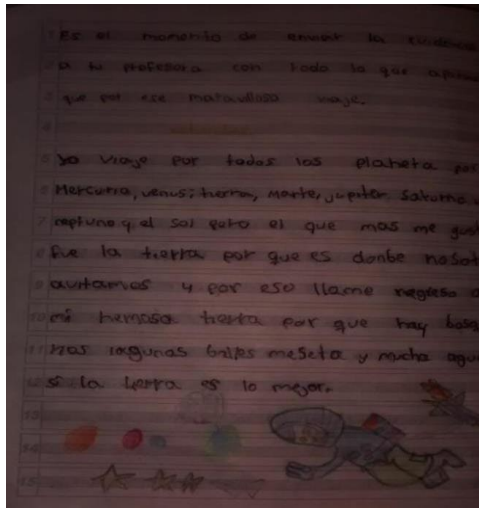 1 Es el momento de enviar la evidencia
2 a tu profesora con todo lo que
3 que por ese maravilloso viaje.
4
5 yo viaje por todos los planeta
6 Mercurio, venus, tierra, Marte, jupiter Saturno
7 neptuno y el sol pero el que mas me
8 fue la tierra por que es donbe
9 avitamos y por eso llame regreso a
10 mi hemosa tierra por que hay
11 lagunas meseta y mucha
12 si la tierra es lo mejor.
13
14
15